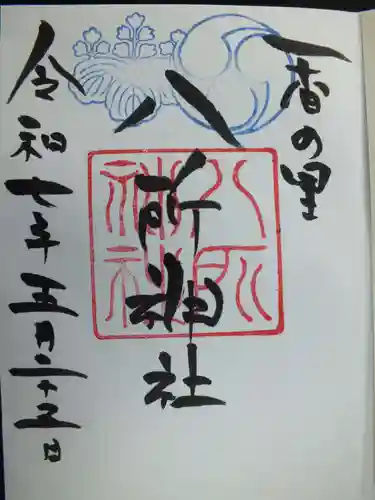 香の里
八所神社
八所
神社
令和七年五月二十五日